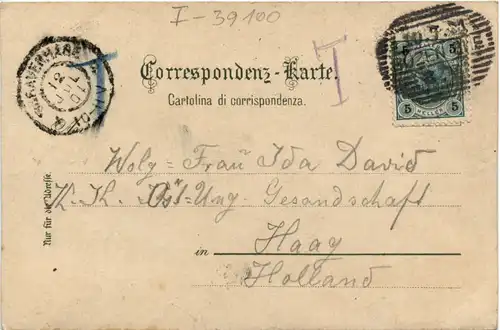 I-39100
T
T
5 5
5 HELLER 5
'SGRAVENHAGE
Correspondenz-Karte.
Cartolina di corrispondenza.
Wolg-Frau Ida David
K. K. Öst-Ung-Gesandschaft
Nur für die Adresse.
in Haag
Holland